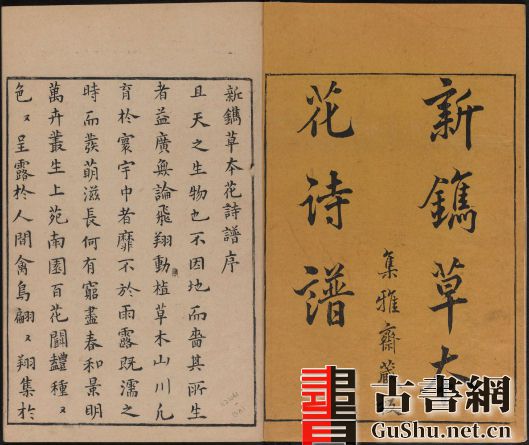 新鐫草本
花诗譜
集雅齋藏
新鐫草本花詩譜序
且天之生物也不因地而嗇其所生
者益廣無論飛翔動植草木山川凡
育於寰宇中者靡不於雨露既濡之
時而發萌滋長何有窮盡春和景明
萬卉叢生上苑南園百花鬪豔種々
色々呈露於人間禽鳥翩々翔集於
古書網
GuShu.net.cn